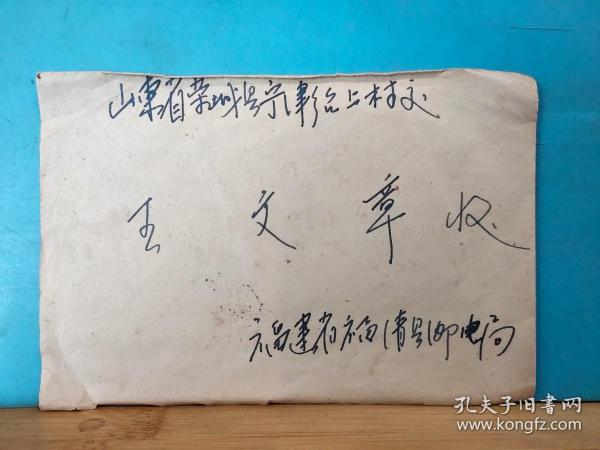 山东省荣城县宁津公上村交
王文章收
福建省福清县邮电局
孔夫子旧书网
www.kongfz.com